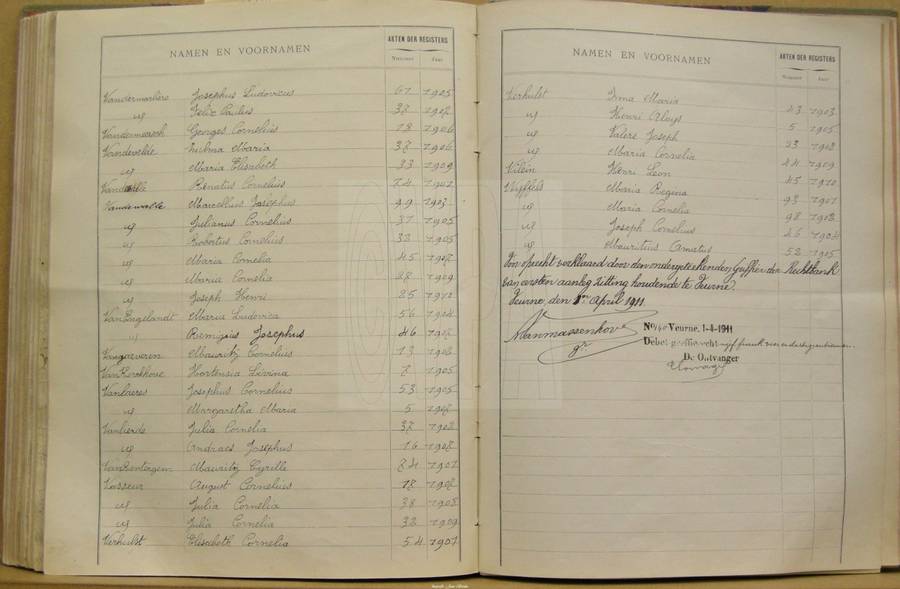 AKTEN DER REGISTERS
NAMEN EN VOORNAMEN
Nummer Jaar
Vandermarliere Josephus Ludovicus 67 1905
id Felix Paulus 32 1907
Vandermeersch Georges Cornelius 28 1906
Vandevelde Zulma Maria 37 1906
id Maria Elisabeth 33 1909
Vandewalle Renatus Cornelius 24 1902
Vandenwalle Marcellus Josephus 49 1903
id Julianus Cornelius 37 1905
id Robertus Cornelius 33 1905
id Maria Cornelia 45 1907
id Maria Cornelia 28 1909
id Joseph Henri 25 1910
VanEngelandt Maria Ludovica 56 1904
id Remigius Josephus 46 1907
Vangaeveren Mauritz Cornelius 13 1908
VanKerckhove Hortensia Livina 2 1905
Vanlaeres Josephus Cornelius 53 1905
id Margaretha Maria 5 1907
Vanlierde Julia Cornelia 37 1902
id Andreas Josephus 16 1907
VanRenterghem Mauritz Cyrille 24 1901
Vasseur August Cornelius 12 1902
id Julia Cornelia 38 1908
id Julia Cornelia 32 1909
Verhulst Elisabeth Cornelia 54 1901
NAMEN EN VOORNAMEN
AKTEN DER REGISTERS
Nummer Jaar
Verhulst Irma Maria 43 1903
id Henri Aloys 5 1905
id Valere Joseph 23 1908
id Maria Cornelia 44 1909
Vilein Henri Leon 45 1910
Maria Regina 93 1901
id Maria Cornelia 98 1902
id Joseph Cornelius 26 1904
id Mauritius Amatus 52 1905
Voor opecht verklaard door den ondergeteekenden Griffier der Rechtbank
van eersten aanleg zitting houdende te Veurne.
Veurne, den 1en April 1911
Vanmassenhove
gr
Veurne, 1-4-1911
De Ontvanger